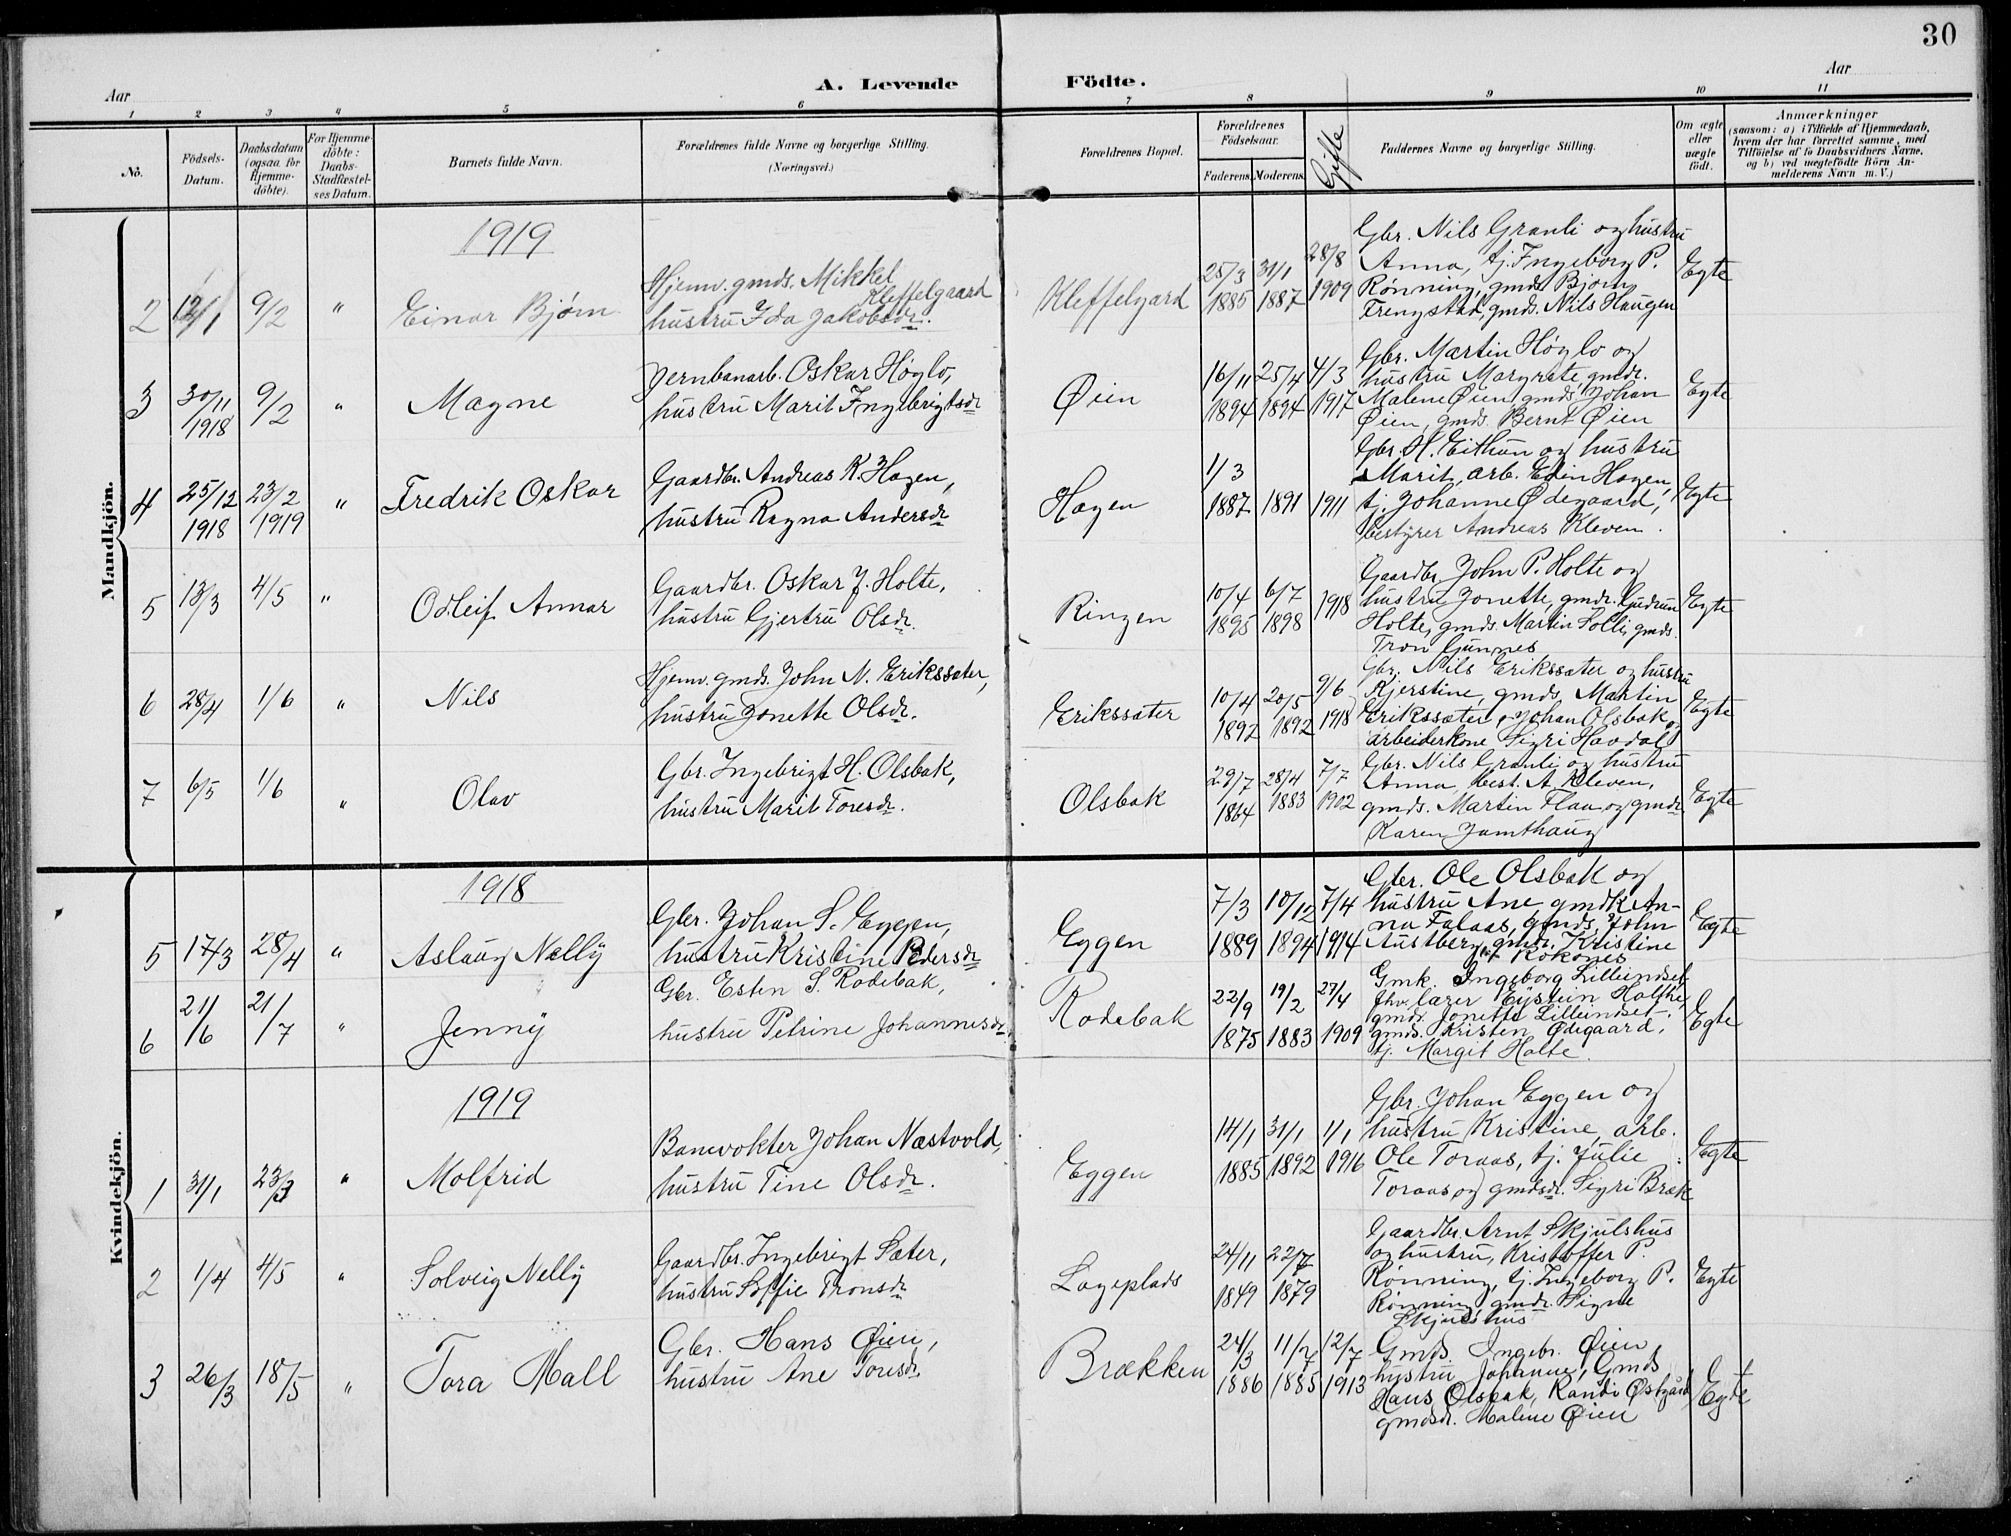 30
A. Levende Födte.
Aar
Aar
1 2 3 4 5 6 7 8 9 10 11
No.
Födsels-Datum.
Daabsdatum (ogsaa for Hjemme-döbte).
For Hjemme-döbte: Daabs-Stadfæstel-ses Datum.
Barnets fulde Navn.
Forældrenes fulde Navne og borgerlige Stilling.
(Næringsvei.)
Forældrenes Bopæl.
Forældrenes Födselsaar.
Faderens. Moderens.
Gifte
Faddernes Navne og borgerlige Stilling.
Om ægte eller uægte födt.
Anmærkninger
(saasom: a) i Tilfælde af Hjemmedaab,
hvem der har forrettet samme, med
Tilföielse af to Daabsvidners Navne,
og b) ved uægtefödte Börn An-
melderens Navn m. V.)
Mandkjön.
1919
2 12/1 9/2 " Einar Bjørn
Hjemv. gmds. Mikkel Kleffelgaard
hustru Ida Jakobsdr.
Kleffelgard
25/3 1885 31/1 1887 28/8 1909
Gbr. Nils Granli og hustru
Anna, tj. Ingeborg P.
Rønning, gmds. Bjørn
Trengstad, gmds. Nils Haugen
Egte
3 30/11 1918 9/2 " Magne
Jernbanarb. Oskar Høglo,
hustru Marit Ingebrigtsdr
Øien
16/11 1894 25/4 1894 4/3 1917
Gbr. Martin Høglo og
hustru Margrete, gmdr.
Malene Øien, gmds. Johan
Øien, gmds. Bernt Øien
Egte
4 25/12 1918 23/2 1919 " Fredrik Oskar
Gaardbr. Andreas K. Hagen,
hustru Ragna Andersdr
Hagen
1/3 1887 1891 1911
Gbr. H. Eithun og hustru
Marit, arb. Edin Hagen,
tj. Johanne Ødegaard,
bestyrer Andreas Kleven.
Egte
5 13/3 4/5 " Odleif Annar
Gaardbr. Oskar J. Holte,
hustru Gjertru Olsdr.
Ringen
10/4 1895 6/7 1898 1918
Gaardbr. John P. Holte og
hustru Jonette, gmdr. Gudrun
Holte, gmds. Martin Solli, gmds.
Tron Gunnes
Egte
6 28/4 1/6 " Nils
Hjemv. gmds. John N. Erikssæter,
hustru Jonette Olsdr.
Erikssæter
10/4 1892 20/5 1892 9/6 1918
Gbr. Nils Erikssæter og hustru
Kjerstine, gmds. Martin
Erikssæter, Johan Olsbak og
arbeiderkone Sigri Haodal
Egte
7 6/5 1/6 " Olav
Gbr. Ingebrigt H. Olsbak,
hustru Marit Toresdr.
Olsbak
29/7 1864 28/4 1883 7/7 1902
Gbr. Nils Granli og hustru
Anna, best. A. Kleven,
gmds. Martin Flaa og gmdr
Karen Jamthaug
Egte
Kvindekjön.
1918
5 17/3 28/4 " Aslaug Nelly
Gbr. Johan S. Eggen,
hustru Kristine Pedersdr
Eggen
7/3 1889 10/12 1894 7/4 1914
Gbr. Ole Olsbak og
hustru Ane gmdk An-
na Falaas, gmds. John
Austberg, gmdr. Kristine
Kokones
Egte
6 21/6 21/7 " Jenny
Gbr. Esten S. Rodebak,
hustru Petrine Johannesdr.
Rodebak
22/9 1875 19/2 1883 27/4 1909
Gmk. Ingeborg Lilleundset
fhv. lærer Eystein Halthe,
gmdr. Jonette Lilleundset.
gmds. Kristen Ødegaard,
tj. Margit Holte.
Egte
1919
1 31/1 23/3 " Molfrid
Banevokter Johan Næstvold,
hustru Tine Olsdr.
Eggen
14/1 1885 31/1 1892 1/1 1916
Gbr. Johan Eggen og
hustru Kristine, arb.
Ole Toraas, tj. Julie
Toraas og gmdsdr. Sigri Bræk
Egte
2 1/4 4/5 " Solveig Nelly
Gaardbr. Ingebrigt Sæter,
hustru Soffie Tronsdr
Lageplads
24/11 1849 22/7 1879
Gaardbr. Arnt Skjulshus
og hustru, Kristoffer P.
Rønning, tj. Ingeborg P.
Rønning, gmdr. Signe
Skjulshus
Egte
3 26/3 18/5 " Tora Mall
Gbr. Hans Øien,
hustru Ane Toresdr.
Brækken
24/3 1886 11/7 1885 12/7 1913
Gmds Ingebr. Øien,
hustru Johanne, Gmds
Hans Olsbak, Randi Østgård,
gmdsdr. Malene Øien
Egte